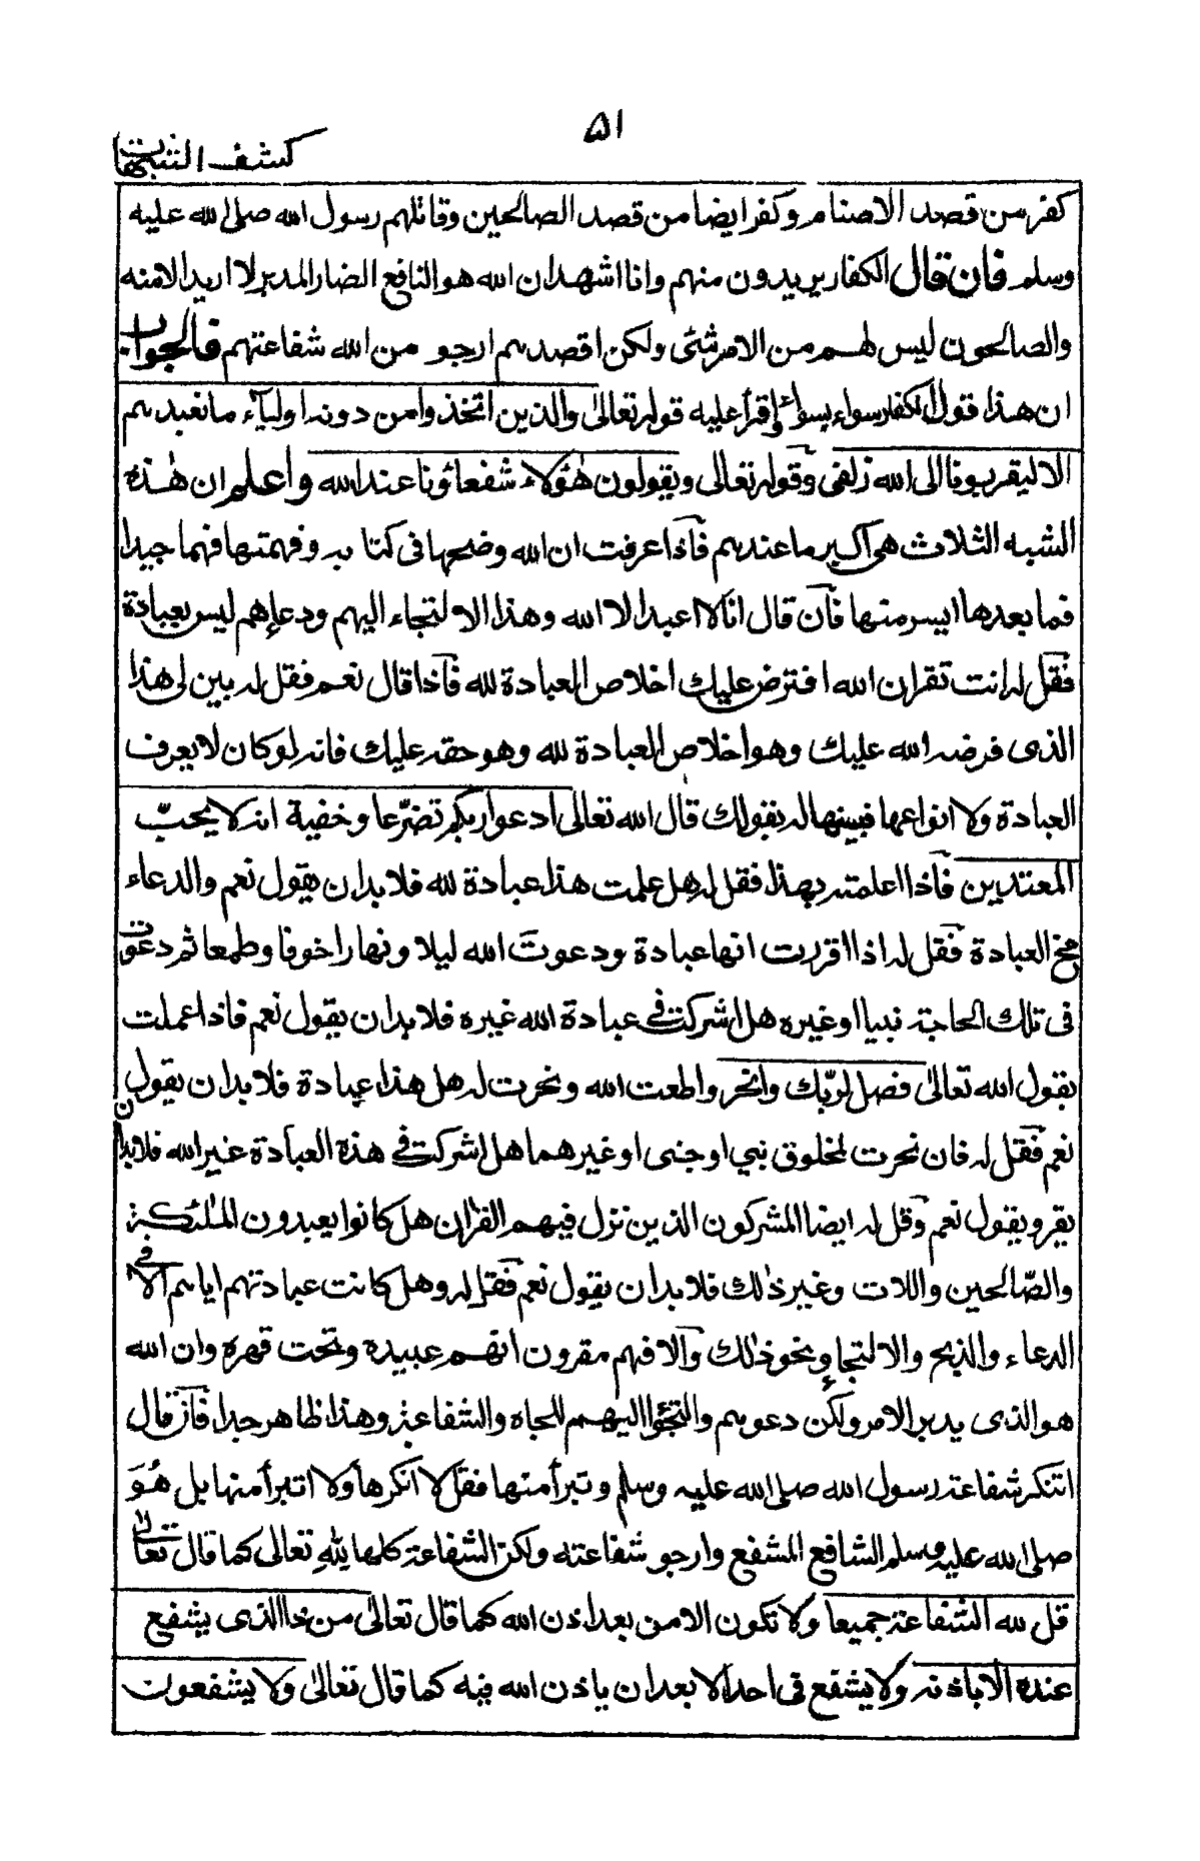 ٥١
كشف الشبهات
كفر من قصد الاصنام وكفر ايضا من قصد الصالحين وقاتلهم رسول الله صلى الله عليه
وسلم فان قال الكفار يريدون منهم وانا اشهد ان الله هو النافع الضار المدبر لا اريد الا منه
والصالحون ليس لهم من الامر شئ ولكن اقصدهم ارجو من الله شفاعتهم فالجواب
ان هذا قول الكفار سواء بسواء واقرأ عليه قوله تعالى والذين اتخذوا من دونه اولياء ما نعبدهم
الا ليقربونا الى الله زلفى وقوله تعالى ويقولون هٰؤلاء شفعاؤنا عند الله واعلم ان هٰذه
الشبه الثلاث هى اكبر ما عندهم فاذا عرفت ان الله وضحها فى كتابه وفهمتها فهما جيدا
فما بعدها ايسر منها فان قال انا لا اعبد الا الله وهذا الالتجاء اليهم ودعاءهم ليس بعبادة
فقل له انت تقر ان الله افترض عليك اخلاص العبادة لله فاذا قال نعم فقل له بين لى هذا
الذى فرضه الله عليك وهو اخلاص العبادة لله وهو حقه عليك فانه لو كان لا يعرف
العبادة ولا انواعها فبينها له بقولك قال الله تعالى ادعوا ربكم تضرّعا وخفية انه لا يحبّ
المعتدين فاذا اعلمته بهذا فقل له هل علمت هذا عبادة لله فلا بد ان يقول نعم والدعاء
مخ العبادة فقل له اذا اقررت انها عبادة ودعوتَ الله ليلا ونهارا خوفا وطمعا ثم دعوت
فى تلك الحاجة نبيا او غيره هل اشركت فى عبادة الله غيره فلا بد ان يقول نعم فاذا عملت
بقول الله تعالى فصل لربّك وانحر واطعت الله ونحرت له هل هذا عبادة فلا بد ان يقول
نعم فقل له فان نحرت لمخلوق نبي او جنى او غيرهما هل اشركت فى هذه العبادة غير الله فلا بد ان
يقر ويقول نعم وقل له ايضا المشركون الذين نزل فيهم القرٰان هل كانوا يعبدون الملٰئكة
والصّالحين واللات وغير ذٰلك فلا بد ان يقول نعم فقل له وهل كانت عبادتهم اياهم الا فى
الدعاء والذبح والالتجاء ونحو ذٰلك والا فهم مقرون انهم عبيده وتحت قهره وان الله
هو الذى يدبر الامر ولكن دعوهم والتجؤا اليهم للجاه والشفاعة وهذا ظاهر جدا فان قال
اتنكر شفاعة رسول الله صلى الله عليه وسلم وتبرأ منها فقل لا انكرها ولا اتبرأ منها بل هُوَ
صلى الله عليه وسلم الشافع المشفع وارجو شفاعته ولكن الشفاعة كلها للهِ تعالى كما قال تعالٰى
قل لله الشفاعة جميعا ولا تكون الا من بعد اذن الله كما قال تعالٰى من ذا الذى يشفع
عنده الا باذنه ولا يشفع فى احد الا بعد ان ياذن الله فيه كما قال تعالٰى ولا يشفعون